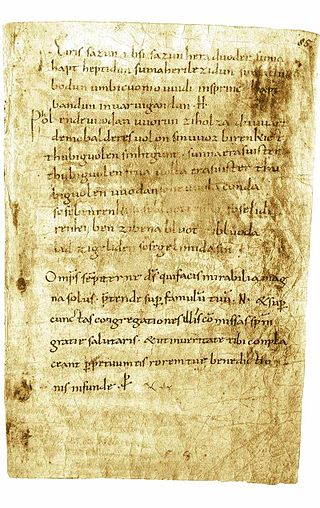 85
Eiris sazun idisi sazun hera duoder suma
hapt heptidun sumaherilezidun sumaclu
bodun umbicuonio uuidi insprinc hapt
bandun inuar uigandun· H·
Phol endeuuodan uuorun ziholza du uuart
demobalderes uolon sinuuoz birenkict
thubiguolen sinhtgunt· sunnaerasuister
thubiguolen friia uolla erasuister thu
biguolen uuodan sohe uuola conda
sosebenrenki sosebluotrenki soselidi
renki ben zibena bluot zibluoda
lid zigeliden sosegelimidasin·
Omps sēpiterne dš quifacis mirabilia mag
na solus· p̄tende sup famulū tuū· N· & sup
cunctas congregationes illis cōmissas spm
gratie salutaris· & ut inueritate tibi compla
ceant ppetuum eis rorem tue benedictio
nis infunde· p